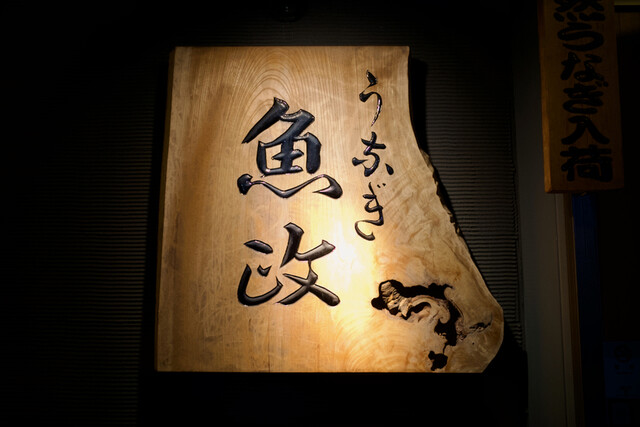 うなぎ
魚政
然うなぎ入荷